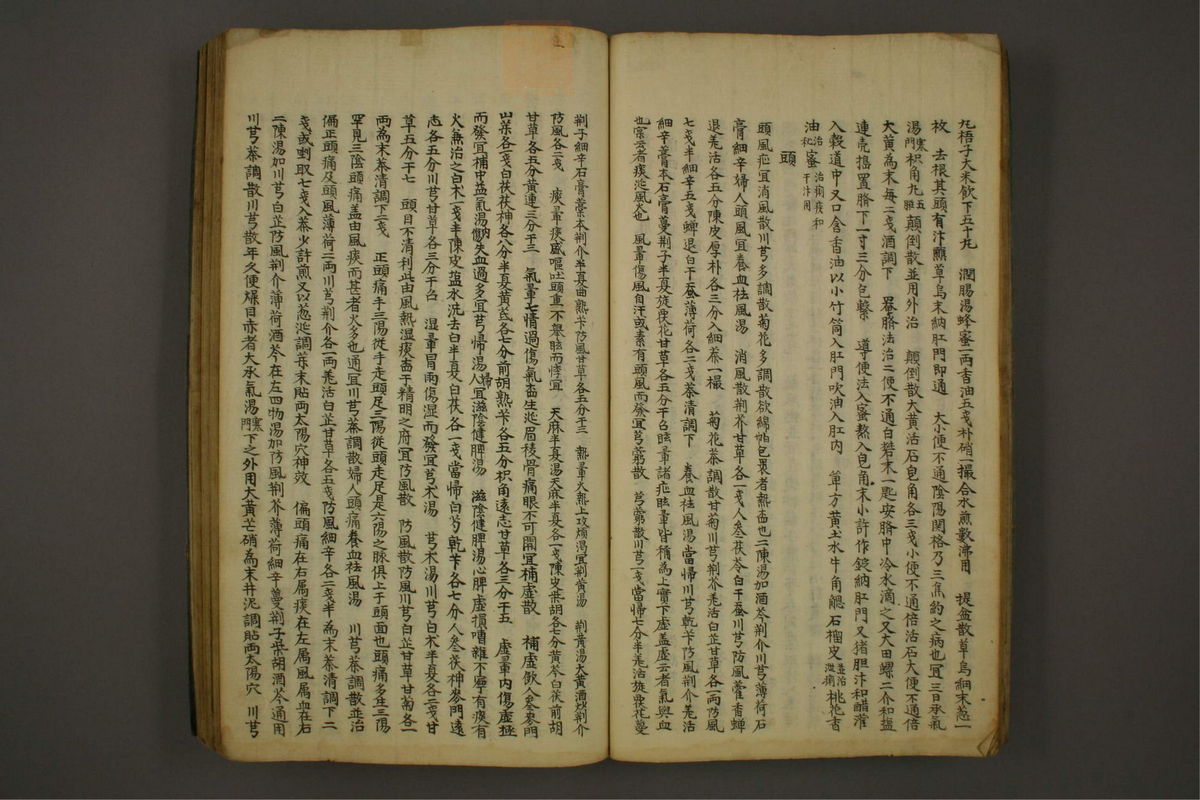 丸梧子大米飲下五十丸 潤腸湯蜂蜜一兩香油五戔朴硝一撮合水煎數沸用 提盆散草烏細末葱一
枚 去根其頭有汁蘸草烏末納肛門即通 大小便不通陰陽関格乃三焦約之病也冝三日承氣
湯門寒枳角丸五胆顛倒散並用外治 顛倒散大黃活石皂角各三戔小便不通倍活石大便不通倍
大黃為末每二戔酒調下 罨臍法治二便不通白礬末一匙安臍中冷水滴之又大田螺二介和塩
連壳搗置臍下一寸三分包繫 導便法入蜜熬入皂角末小許作錠納肛門又猪胆汁和醋灌
入穀道中又口含香油以小竹筒入肛門吹油入肛內 單方黃土水牛角鰓石榴皮並治泄痢桃花香
油治秘蜜治痢疾和干汁用
頭
頭風症冝消風散川芎多調散菊花多調散欲綿帕包裹者熱盉也二陳湯加酒芩荆介川芎薄荷石
膏細辛婦人頭風冝養血祛風湯 消風散荆芥甘草各一戔人參茯苓白干蚕川芎防風藿香蟬
退羌活各五分陳皮厚朴各三分入細茶一撮 菊花茶調散甘菊川芎荆芥羌活白芷甘草各一兩防風
七戔半細辛五戔蟬退白干蚕薄荷各二戔茶清調下 養血祛風湯當帰川芎乾芐防風荆介羌活
細辛藁本石膏蔓荆子半夏旋覆花甘草各五分干召眩暈諸症眩暈皆稱為上實下虛盖虛云者氣與血
也宲云者痰涎風火也 風暈傷風自汗或素有頭風而發冝芎藭散 芎藭散川芎一戔當帰七分半羌活旋覆花蔓
荆子細辛石膏藁本荆介半夏曲熟芐防風甘草各五分干三 熱暈火熱上攻煩渴冝荆黃湯 荆黃湯大黃酒炒荆介
防風各二戔 痰暈痰盛嘔吐頭重不舉眩而悸冝 天麻半夏湯天麻半夏各一戔陳皮柴胡各七分黃芩白茯前胡
甘草各五分黃連三分干三 氣暈七情過傷氣盉生涎眉稜骨痛眼不可開冝補虛散 補虛飲人參麥門
山藥各一戔白茯茯神各八分半夏黃芪各七分前胡熟芐各五分枳角遠志甘草各三分干五 虛暈內傷虛極
而發冝補中益氣湯衂失血過多冝芎帰湯婦人冝滋陰健脾湯 滋陰健脾湯心脾虛損嘈雜不寧有痰有
火無治之白朮一戔半陳皮塩水洗去白半夏白茯各一戔當帰白芍乾芐各七分人參茯神麥門遠
志各五分川芎甘草各三分干召 湿暈冒雨傷湿而發冝芎朮湯 芎朮湯川芎白朮半夏各二戔甘
草五分干七 頭目不清利此由風熱湿痰盉于精明之府冝防風散 防風散防風川芎白芷甘草甘菊各一
兩為末茶清調下二戔 正頭痛手三陽從手走頭足三陽從頭走足是六陽之脉俱上于頭面也頭痛多在三陽
罕見三陰頭痛盖由風痰而甚者火多也通冝川芎茶調散婦人頭痛養血祛風湯 川芎茶調散並治
偏正頭痛及頭風薄荷二兩川芎荆介各一兩羌活白芷甘草各五戔防風細辛各二戔半為末茶清調下二
戔或剉取七戔入茶少許煎又以葱涎調藥末貼兩太陽穴神效 偏頭痛在右属痰在左属風属血在右
二陳湯加川芎白芷防風荆介薄荷酒芩在左四物湯加防風荆芥薄荷細辛蔓荆子柴胡酒芩通用
川芎茶調散川芎散年久便燥目赤者大承氣湯門寒下之外用大黃芒硝為末井泥調貼兩太陽穴 川芎